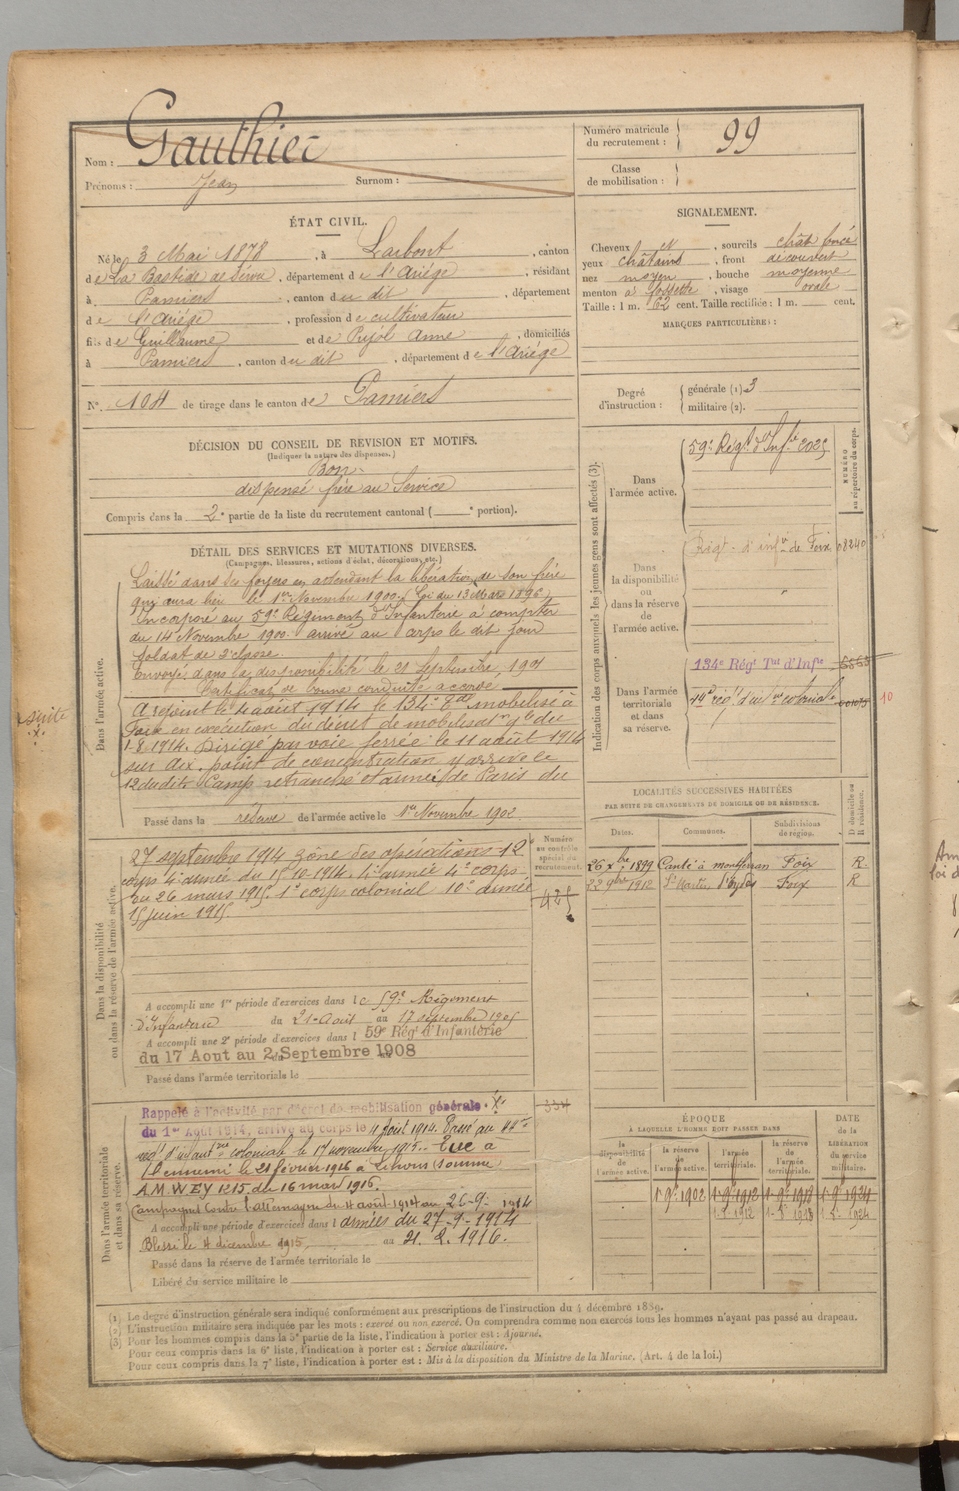 Nom : Gauthier
Prénoms : Jean Surnom :
Numéro matricule du recrutement : 99
Classe de mobilisation :
ÉTAT CIVIL.
Né le 3 Mai 1878, à Larbont, canton
de La Bastide de Sérou, département de l'Ariége, résidant
à Pamiers, canton du dit, département
de l'Ariége, profession de cultivateur
fils de Guillaume et de Pujol Anne, domiciliés
à Pamiers, canton du dit, département de l'Ariége
N° 104 de tirage dans le canton de Pamiers
SIGNALEMENT.
Cheveux et, sourcils chât foncé
yeux châtains, front découvert
nez moyen, bouche moyenne
menton à fossette, visage ovale
Taille : 1 m. 62 cent. Taille rectifiée : 1 m. cent.
MARQUES PARTICULIÈRES :
Degré d'instruction : générale (1) 3
militaire (2).
DÉCISION DU CONSEIL DE REVISION ET MOTIFS.
(Indiquer la nature des dispenses.)
Bon
dispensé frère au Service
Compris dans la 2e partie de la liste du recrutement cantonal ( e portion).
DÉTAIL DES SERVICES ET MUTATIONS DIVERSES.
(Campagnes, blessures, actions d'éclat, décorations, etc.)
Dans l'armée active.
Laissé dans ses foyers en attendant la libération de son frère
qui aura lieu le 1er Novembre 1900. (Loi du 13 Mars 1896)
Incorporé au 59e Régiment d'Infanterie à compter
du 14 Novembre 1900. arrivé au corps le dit jour
soldat de 2e classe.
Envoyé dans la disponibilité le 21 Septembre 1901
Certificat de bonne conduite accordé
A rejoint le 4 août 1914 le 134e Rt mobilisé à
Foix en exécution du décret de mobilisation gle du
1-8-1914. Dirigé par voie ferrée le 11 août 1914
sur Aix. point de concentration y arrive le
12 dudit. Camp retranché et armée de Paris du
suite
x.
Passé dans la réserve de l'armée active le 1er Novembre 1902
Numéro au contrôle spécial du recrutement.
425
Dans la disponibilité ou dans la réserve de l'armée active.
27 septembre 1914 zône des opérations 12e
corps 4e armée du 15-10-1914. 4e armée 4e corps
du 26 mars 1915. 1er corps colonial 10e armée
15 juin 1915.
A accompli une 1re période d'exercices dans le 59e Régiment
d'Infanterie du 21 Août au 17 septembre 1905
A accompli une 2e période d'exercices dans l 59e Régt d'Infanterie
du 17 Aout au 2 Septembre 1908
Passé dans l'armée territoriale le
Dans l'armée territoriale et dans sa réserve.
Rappelé à l'activité par décret de mobilisation générale
du 1er Août 1914, arrivé au corps le 4 août 1914. Passé au 44e
régt d'infantrie coloniale le 17 novembre 1915. Tué à
l'ennemi le 21 février 1916 à Lihons (Somme)
A.M.W EY 1215. du 16 mars 1916.
Campagnes Contre l'allemagne du 4 août 1914 au 26-9-1914
A accompli une période d'exercices dans l armées du 27-9-1914
Blessé le 4 décembre 1915, au 21. 2. 1916.
Passé dans la réserve de l'armée territoriale le
Libéré du service militaire le
Indication des corps auxquels les jeunes gens sont affectés (3).
NUMÉRO au répertoire du corps.
Dans l'armée active.
59e Régt d'Infie 2025
Dans la disponibilité ou dans la réserve de l'armée active.
Régt d'infie de Foix 08240
Dans l'armée territoriale et dans sa réserve.
134e Régt Tal d'Infie
44e régt d'infrie coloniale
10
LOCALITÉS SUCCESSIVES HABITÉES
PAR SUITE DE CHANGEMENTS DE DOMICILE OU DE RÉSIDENCE.
Dates. Communes. Subdivisions de région. D domicile ou R résidence.
26 xbre 1899 Canté à montferran Foix R
22 9bre 1912 St Martin d'Oydes Foix R
ÉPOQUE
À LAQUELLE L'HOMME DOIT PASSER DANS
la disponibilité de l'armée active. la réserve de l'armée active. l'armée territoriale. la réserve de l'armée territoriale.
DATE de la LIBÉRATION du service militaire.
1-9bre 1902 1-9bre 1912 1-9bre 1918 1-9bre 1924
(1) Le degré d'instruction générale sera indiqué conformément aux prescriptions de l'instruction du 4 décembre 1889.
(2) L'instruction militaire sera indiquée par les mots : exercé ou non exercé. On comprendra comme non exercés tous les hommes n'ayant pas passé au drapeau.
(3) Pour les hommes compris dans la 5e partie de la liste, l'indication à porter est : Ajourné.
Pour ceux compris dans la 6e liste, l'indication à porter est : Service auxiliaire.
Pour ceux compris dans la 7e liste, l'indication à porter est : Mis à la disposition du Ministre de la Marine. (Art. 4 de la loi.)